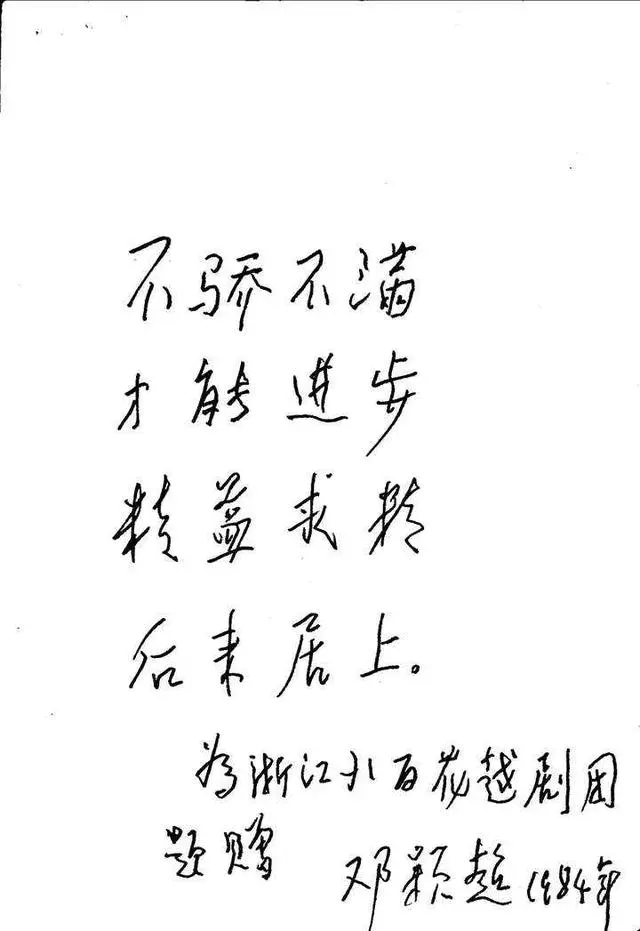 不骄不满
才能进步
精益求精
后来居上。
为浙江小百花越剧团
题赠 邓颖超 1984年